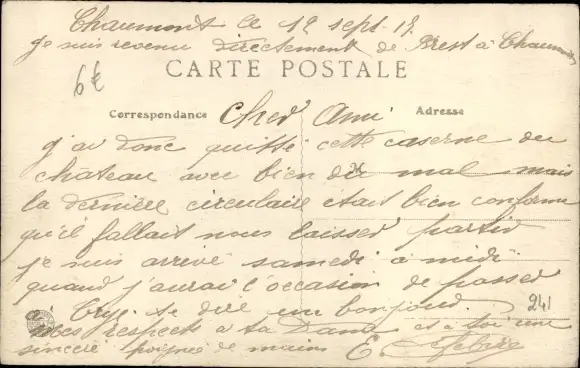 Chaumont le 12 sept. 18.
Je suis revenu directement de Brest à Chaumont
CARTE POSTALE
6€
Correspondance Cher Ami Adresse
j'ai donc quitté cette caserne du
château avec bien du mal mais
M
la dernière circulaire était bien conforme
qu'il fallait nous laisser partir
je suis arrivé samedi à midi
quand j'aurai l'occasion de passer
te dire un bonjour.
241
mes respects à ta Dame et à toi une
sincère poignée de mains E. Lefebvre